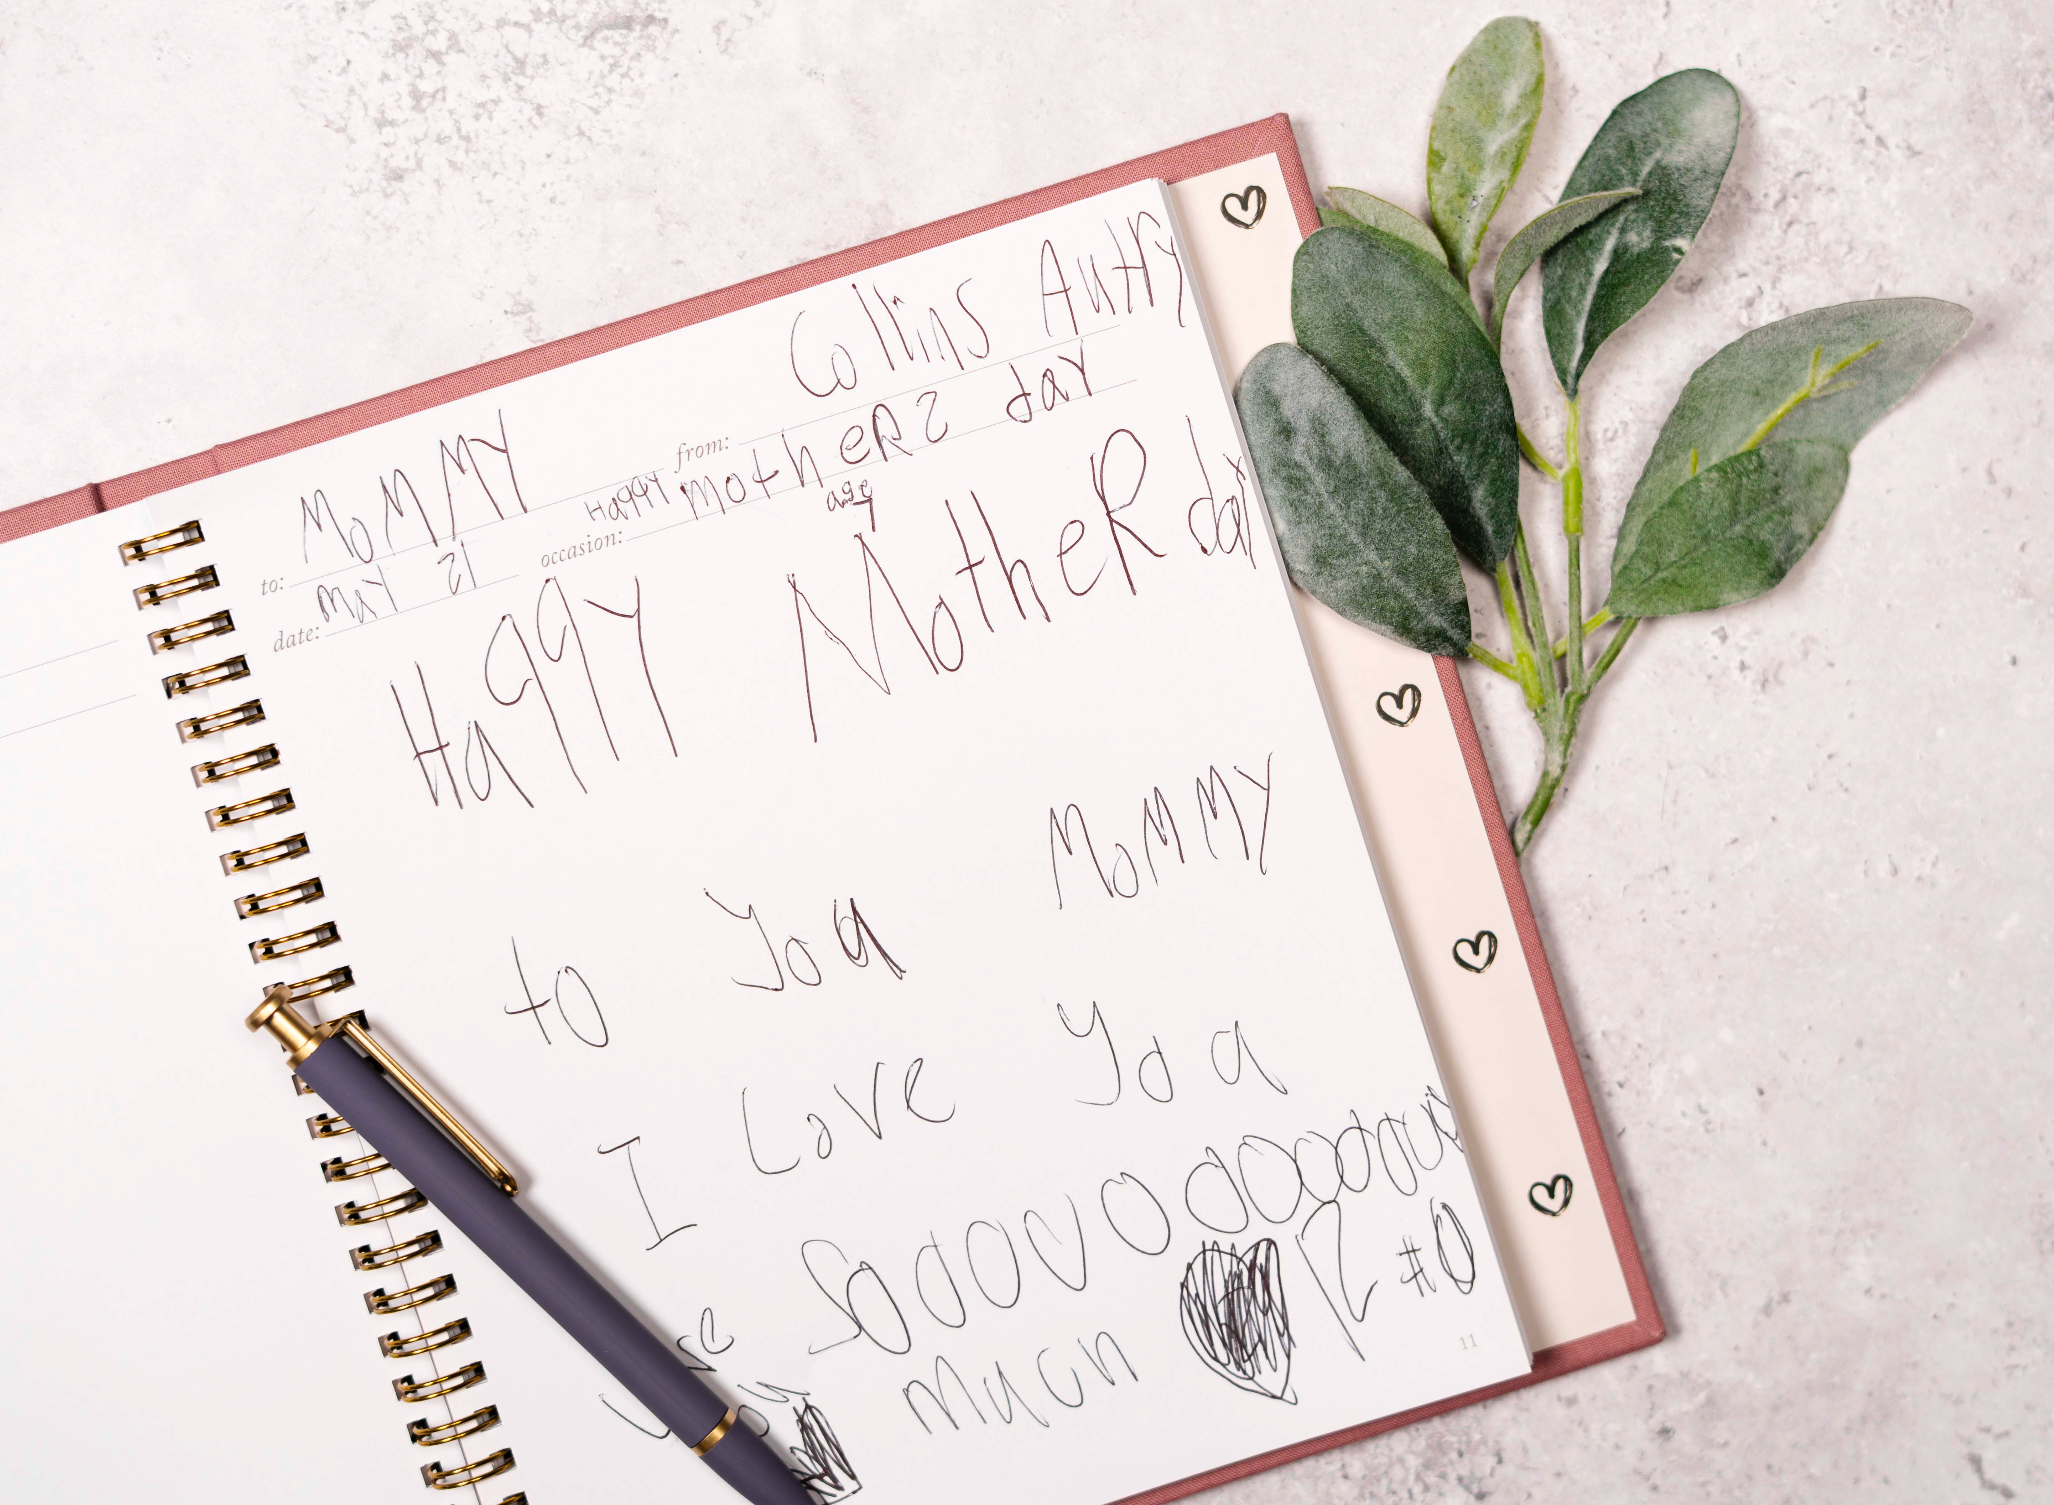 to: MoMMY from: Collins Autry
date: May 21 occasion: Happy motheRs day
age 7
Happy MotheR day
to you MoMMY
I Love you
Sooooooooooooo
much
11